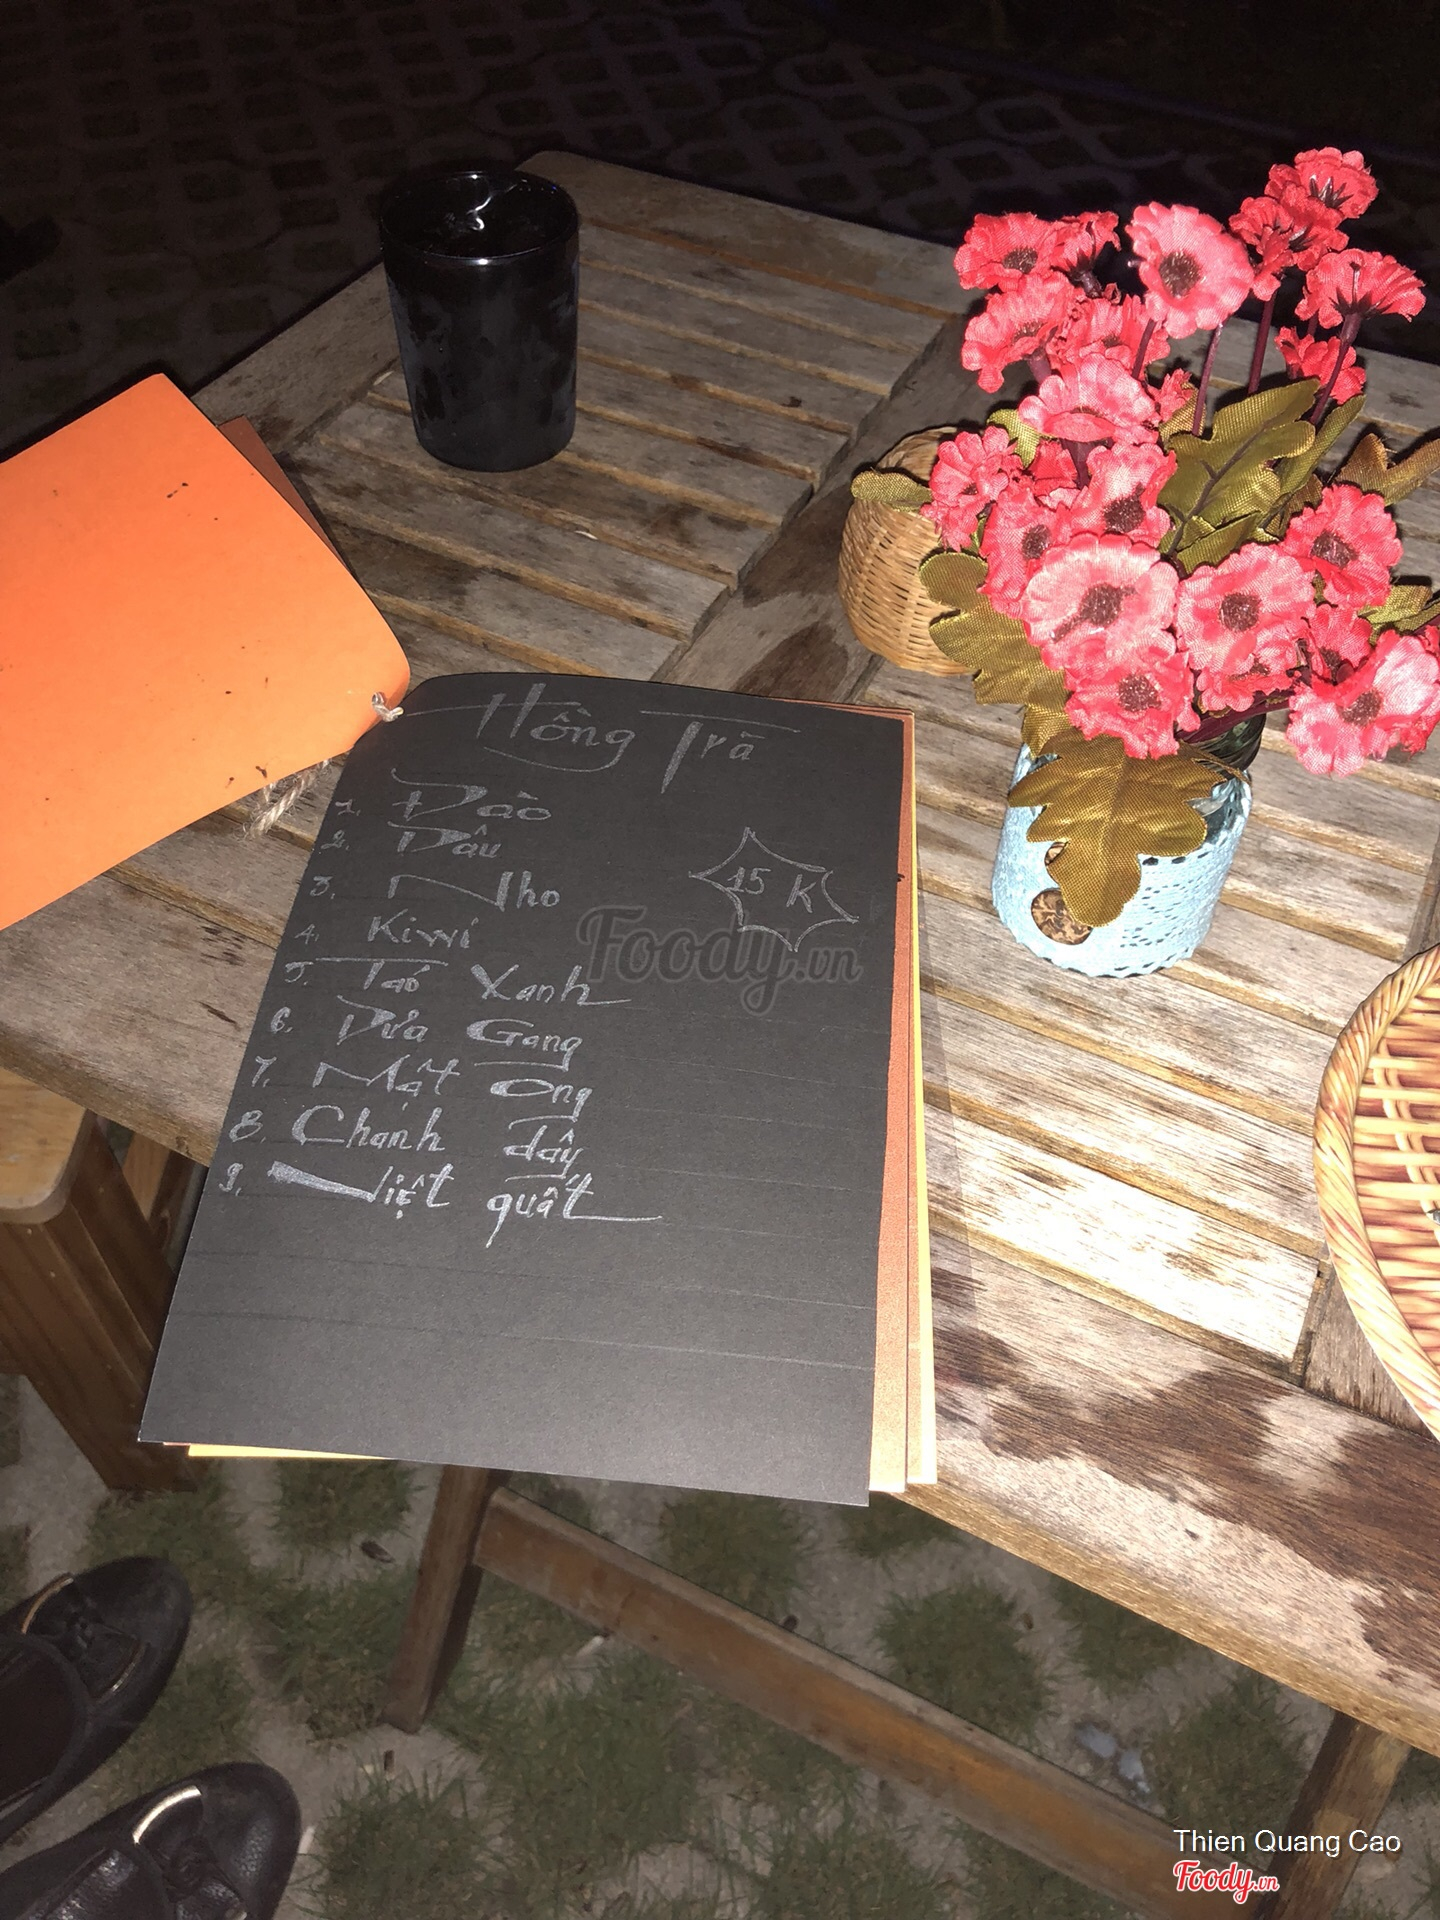 Hồng Trà
1. Đào
2. Dâu
3. Nho
15 K
4. Kiwi
5. Táo Xanh
6. Dưa Gang
7. Mật Ong
8. Chanh dây
9. Việt quất
Foody.vn
Thien Quang Cao
Foody.vn